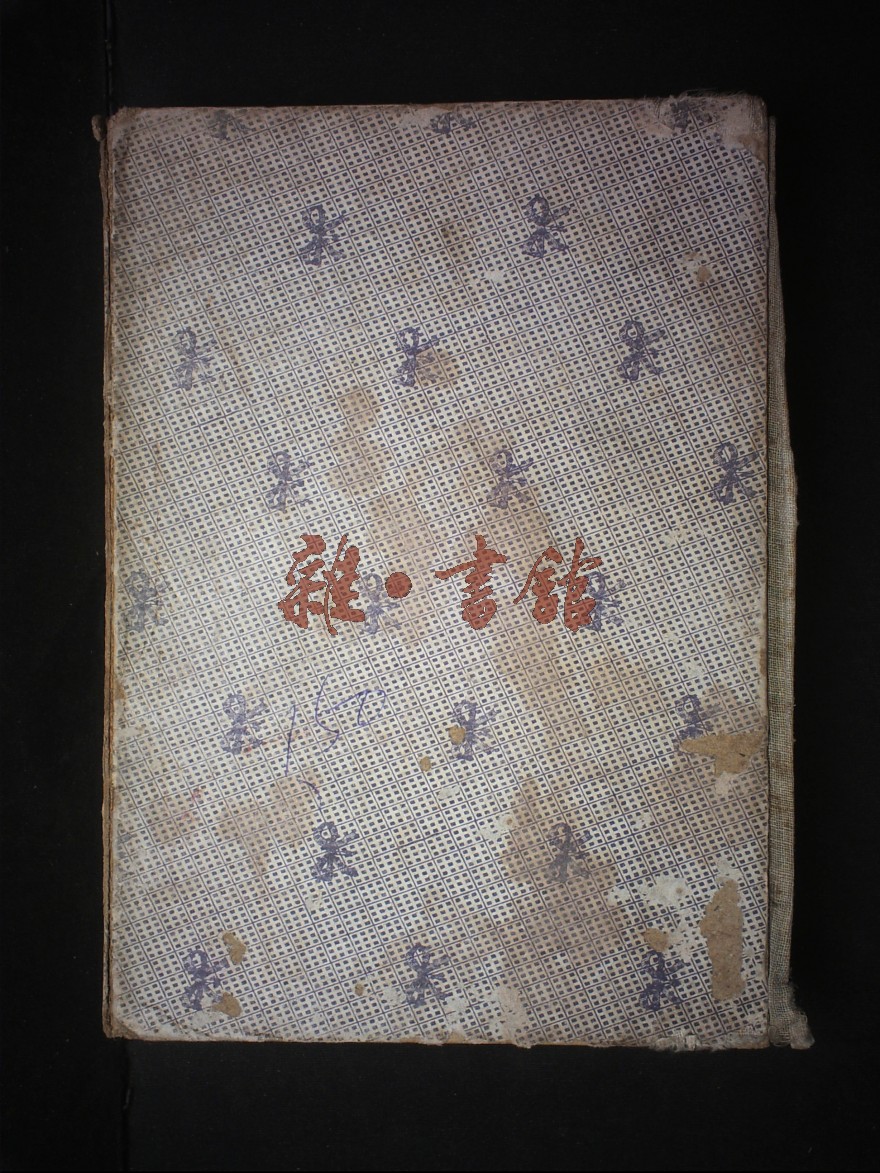 雜·書館
150